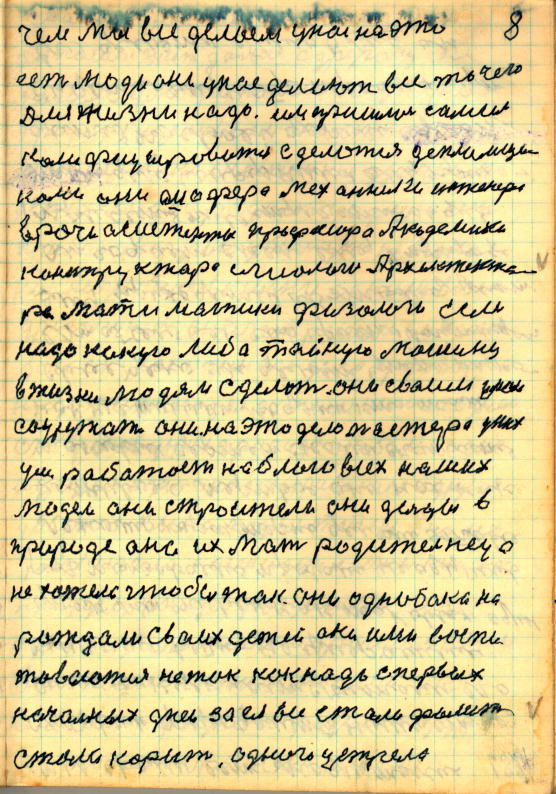 чем мы все делаем у нас на это 8
ест люди они у нас делают все то чего
для жизни надо. им пришлося самим
калифицироватся сделатся
коли они шофера механники инженера
врачи асистенты прафесора Академики
канструктара Архитектa
ра матиматики физологи если
надо какую либа тайную машину
в жизни людям сделат. они сваим умом
саружат они. на это дело мастера у них
ум работает на благо всех наших
людей они строители они делцы в
природе она их мат родителнеца
не хотела чтобы так. они однобака на
рождали сваих детей они ими воспи
товаются не так как надо с первых
началных дней за ел все стали
стали корит. одного